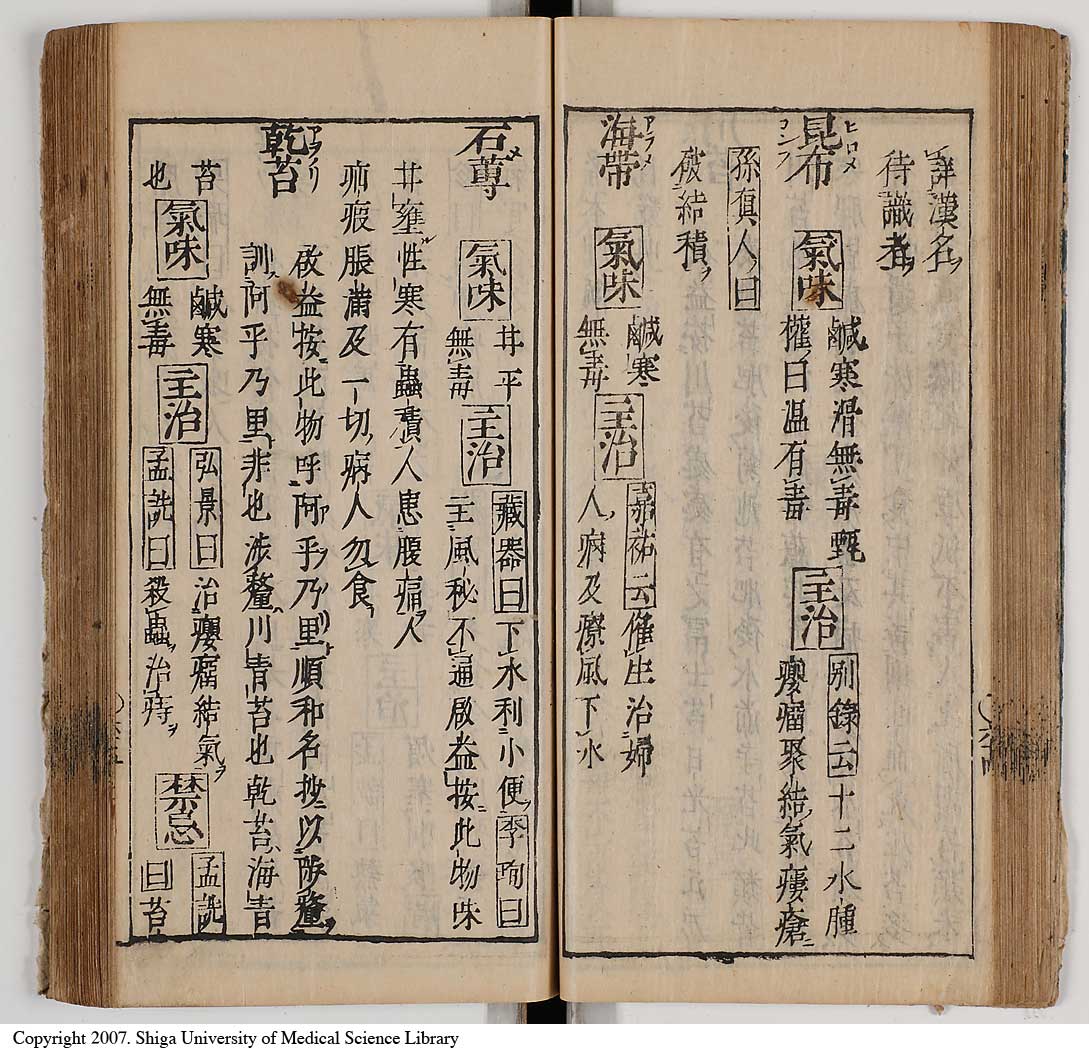 詳漢名ヲ
待識者ヲ
昆布
ヒロメ
コンフ
氣味
鹹寒滑無毒甄
權曰温有毒
主治
別錄云十二水腫
癭瘤聚結氣瘻瘡ニ
孫眞人曰
破結積ヲ
海帶
アラメ
氣味
鹹寒
無毒
主治
嘉祐云催生治婦
人病及療風下水
石蓴
メ
氣味
甘平
無毒
主治
藏器曰下水利小便ヲ李珣曰
主風秘不通啟益按此物味
甘性寒有蟲積人患腹痛人
疝痕脹滿及一切病人勿食
乾苔
アヲノリ
啟益按此物呼阿乎乃里順和名抄以陟釐
訓阿乎乃里非也渉釐川青苔也乾苔海青
苔
也
氣味
鹹寒
無毒
主治
弘景曰治癭瘤結氣ヲ
孟詵曰殺蟲治痔ヲ
禁忌
孟詵
曰苔